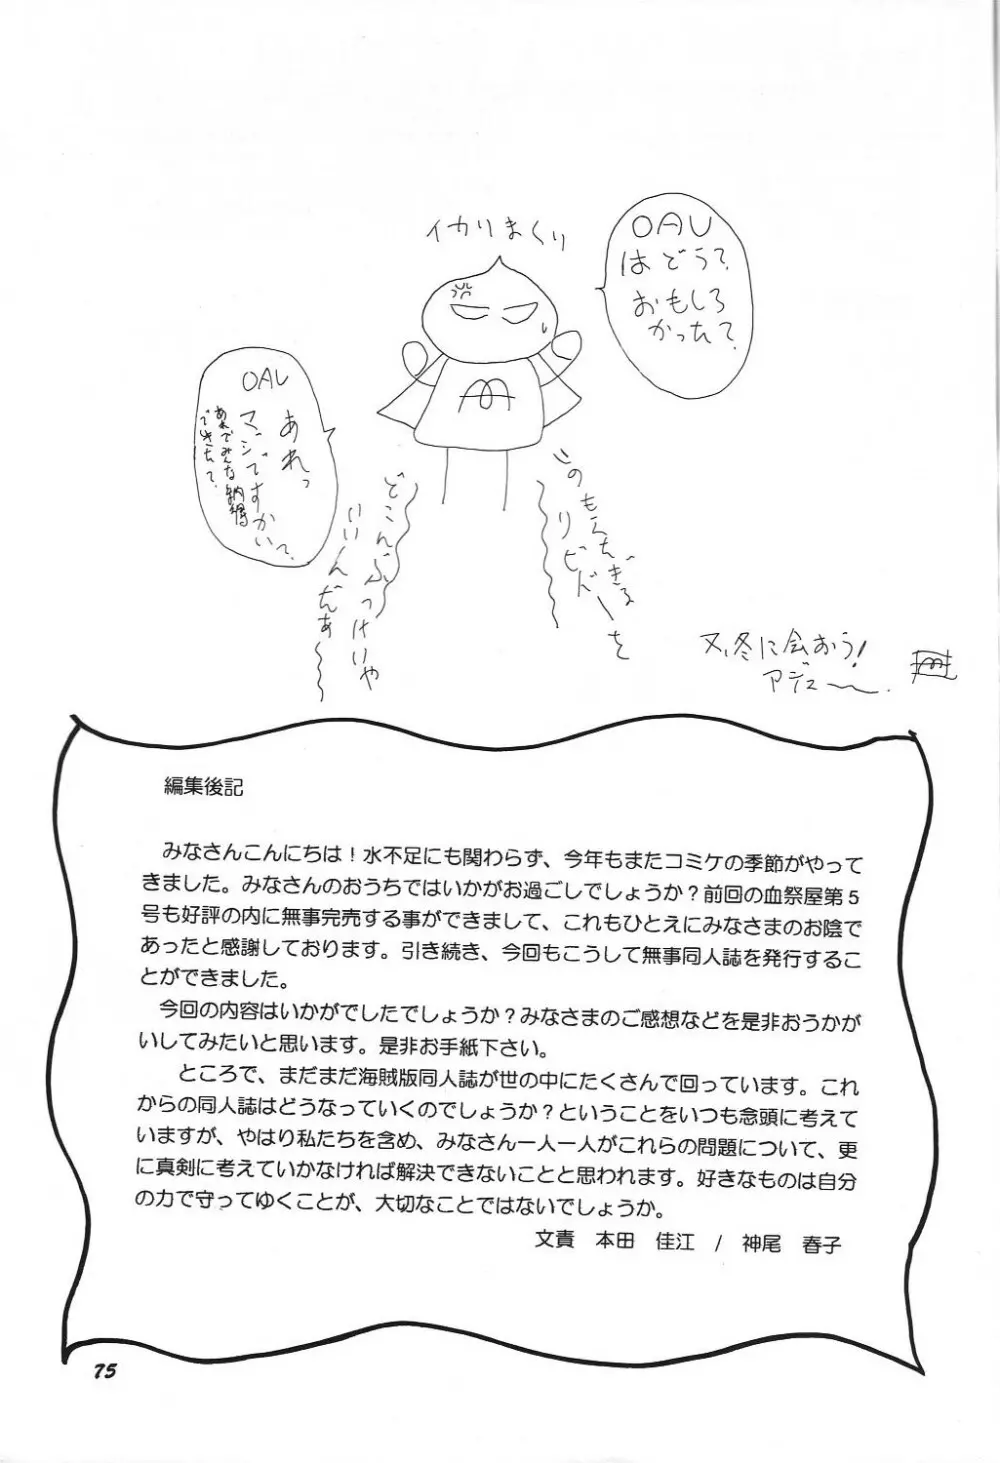 イカリまくり
OAV
はどう?
おもしろ
かった?
OAV
あれっ
マジですかい?
あれでみんな納得
できた?
このもえたぎる
リビドーを
どこにぶつけいや
いいんだぁ〜
又、冬に会おう!
アジュー〜.
編集後記
みなさんこんにちは!水不足にも関わらず、今年もまたコミケの季節がやって
きました。みなさんのおうちではいかがお過ごしでしょうか?前回の血祭屋第5
号も好評の内に無事完売する事ができまして、これもひとえにみなさまのお陰で
あったと感謝しております。引き続き、今回もこうして無事同人誌を発行するこ
とができました。
今回の内容はいかがでしたでしょうか?みなさまのご感想などを是非おうかが
いしてみたいと思います。是非お手紙下さい。
ところで、まだまだ海賊版同人誌が世の中にたくさんで回っています。これ
からの同人誌はどうなっていくのでしょうか?ということをいつも念頭に考えて
いますが、やはり私たちを含め、みなさん一人一人がこれらの問題について、更
に真剣に考えていかなければ解決できないことと思われます。好きなものは自分
の力で守ってゆくことが、大切なことではないでしょうか。
文責 本田 佳江 / 神尾 春子
75